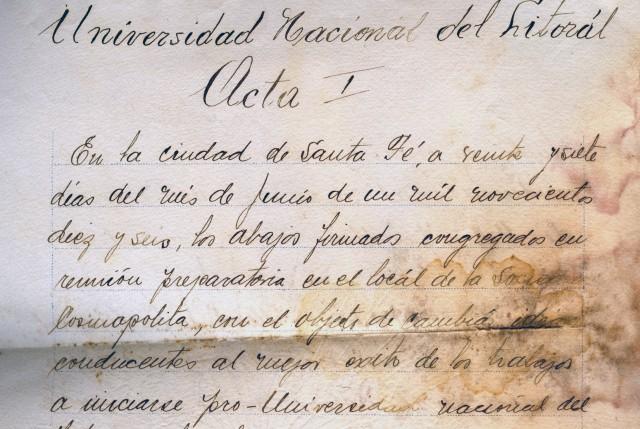 Universidad Nacional del Litorál
Acta I
En la ciudad de Santa Fé, a veinte y siete
días del mes de Junio de un mil novecientos
diez y seis, los abajo firmados congregados en
reunión preparatoria en el locál de la
Cosmopolita, con el objeto de cambiár
conducentes al mejor exito de los trabajos
a iniciarse pro-Universidad nacional del